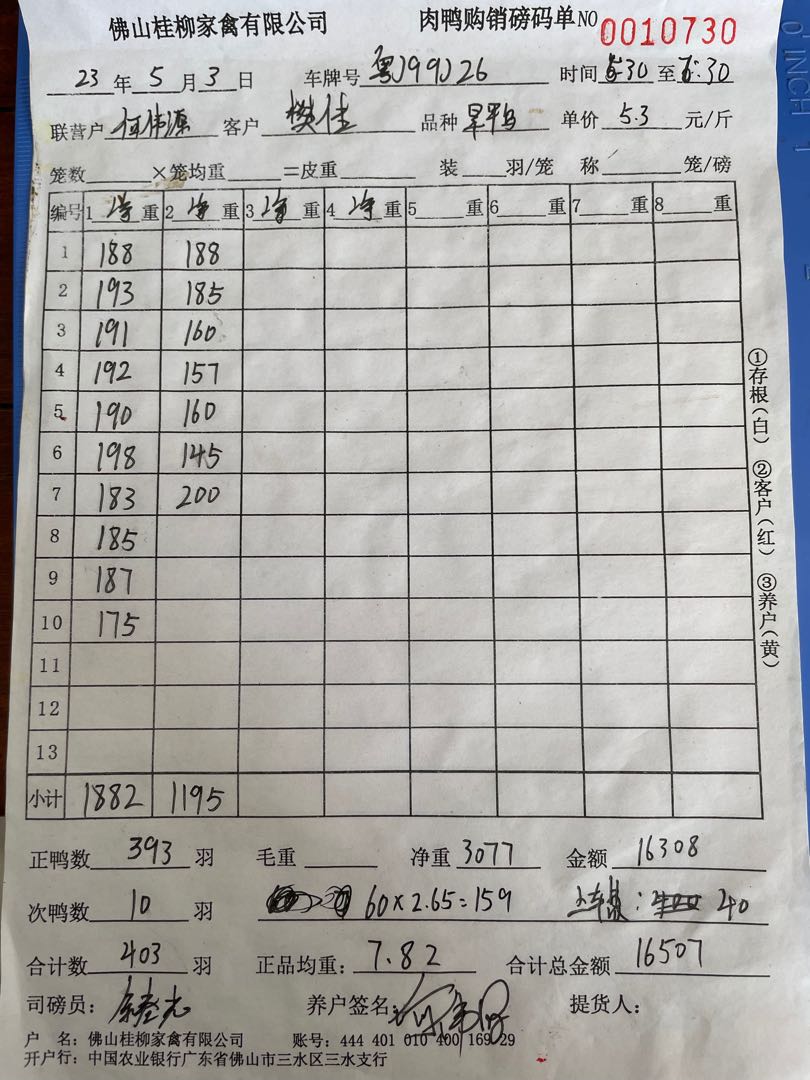 佛山桂柳家禽有限公司 肉鸭购销磅码单 NO 0010730
23年5月3日 车牌号 粤J99J26 时间 5:30 至 6:30
联营户 何伟源 客户 樊佳 品种 旱平鸟 单价 5.3 元/斤
笼数 ×笼均重 =皮重 装 羽/笼 称 笼/磅
编号 1 净重 2 净重 3 净重 4 净重 5 重 6 重 7 重 8 重
1 188 188
2 193 185
3 191 160
4 192 157
5 190 160
6 198 145
7 183 200
8 185
9 187
10 175
11
12
13
小计 1882 1195
正鸭数 393 羽 毛重 净重 3077 金额 16308
次鸭数 10 羽 60×2.65=159 上车费: 40
合计数 403 羽 正品均重: 7.82 合计总金额 16507
司磅员: 养户签名: 何伟源 提货人:
户 名: 佛山桂柳家禽有限公司 账号: 444 401 010 400 169 29
开户行: 中国农业银行广东省佛山市三水区三水支行
①存根(白) ②客户(红) ③养户(黄)
0 INCH 1